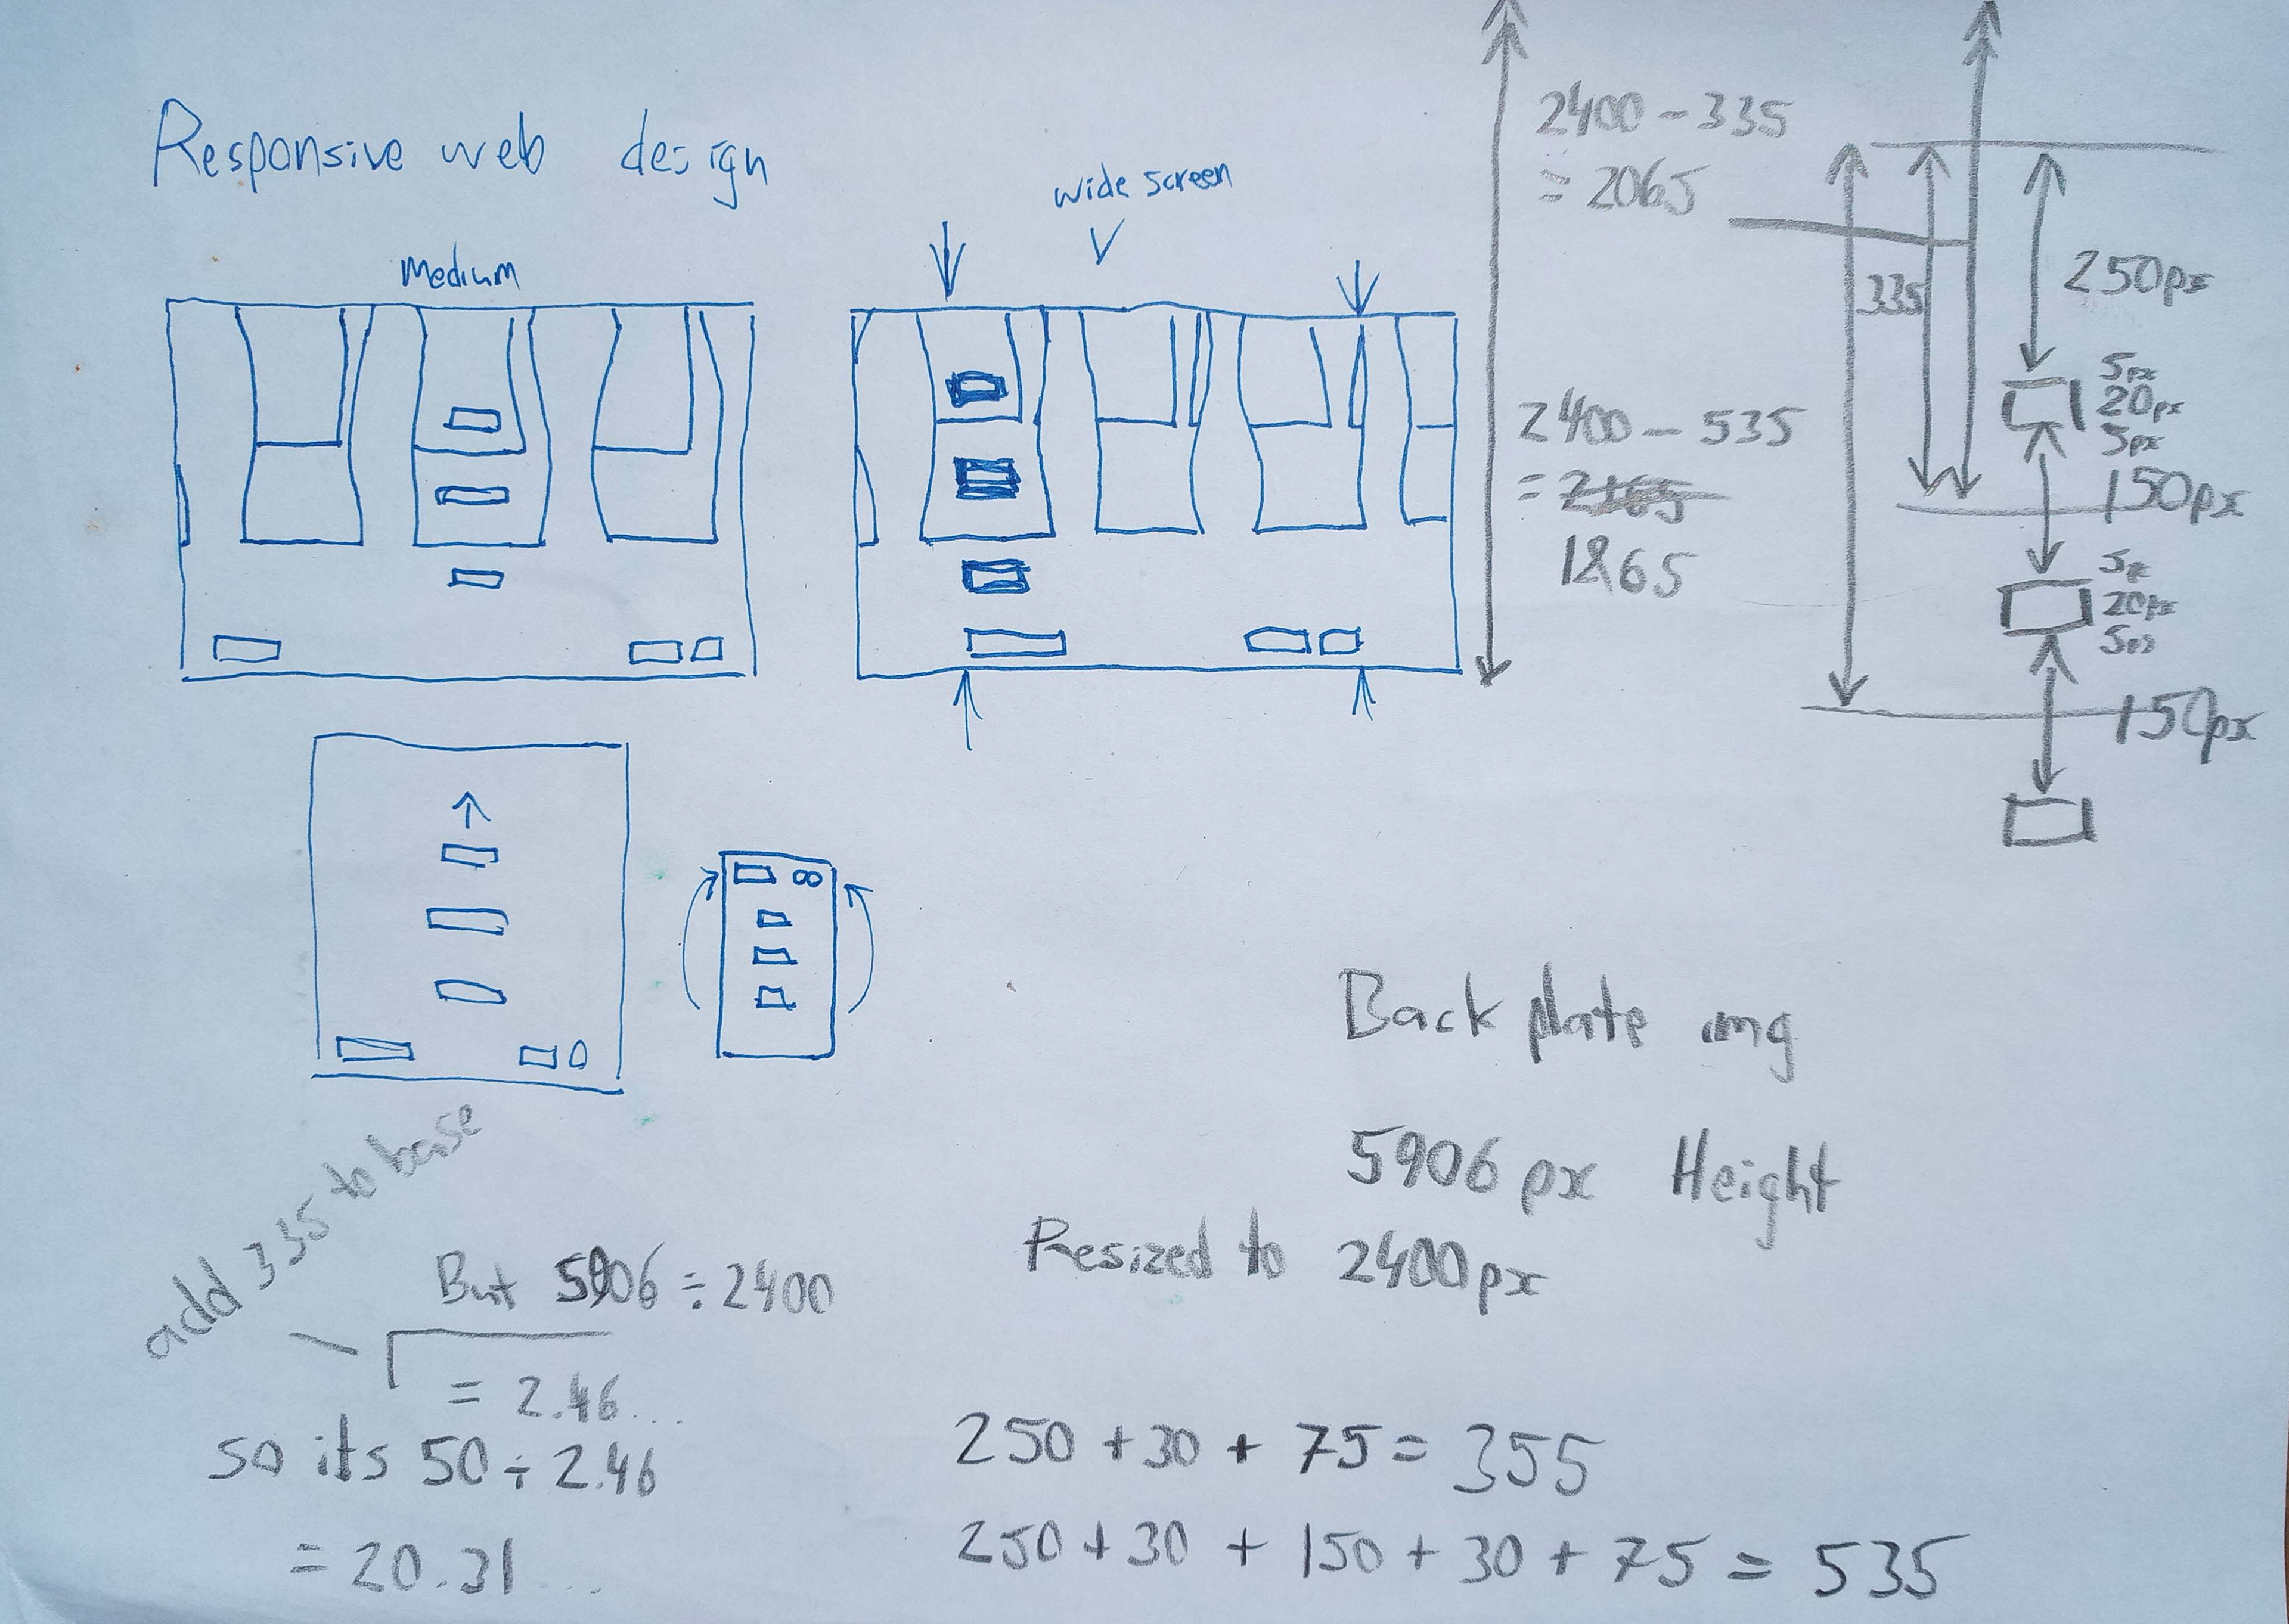 Responsive web design
Medium
wide screen
2400 - 335
= 2065
2400 - 535
= 2165
1865
335
250px
5px
20px
5px
150px
20px
150px
Back plate img
5906 px Height
Resized to 2400px
add 335 to base
But 5906 ÷ 2400
= 2.46...
so its 50 ÷ 2.46
= 20.31...
250 + 30 + 75 = 355
250 + 30 + 150 + 30 + 75 = 535